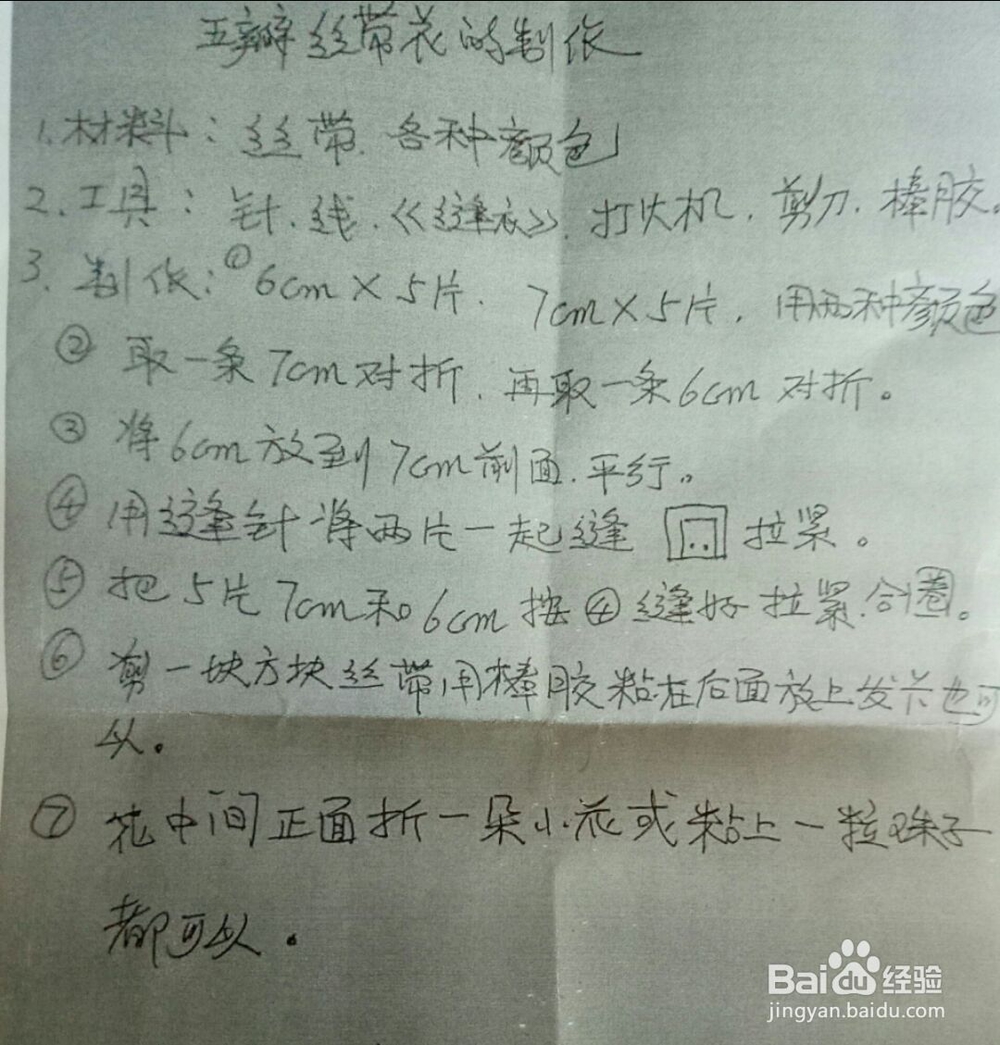 五瓣丝带花的制作
1、材料：丝带、各种颜色
2、工具：针、线、《缝衣》、打火机、剪刀、棒胶。
3、制作：①6cm×5片、7cm×5片，用两种颜色
② 取一条7cm对折、再取一条6cm对折。
③ 将6cm放到7cm前面、平行。
④ 用缝针将两片一起缝 拉紧。
⑤ 把5片7cm和6cm按④缝好拉紧、合圈。
⑥ 剪一块方块丝带、用棒胶粘在后面放上发卡也可
以。
⑦ 花中间正面折一朵小花或粘上一粒珠子
都可以。
Baidu经验
jingyan.baidu.com